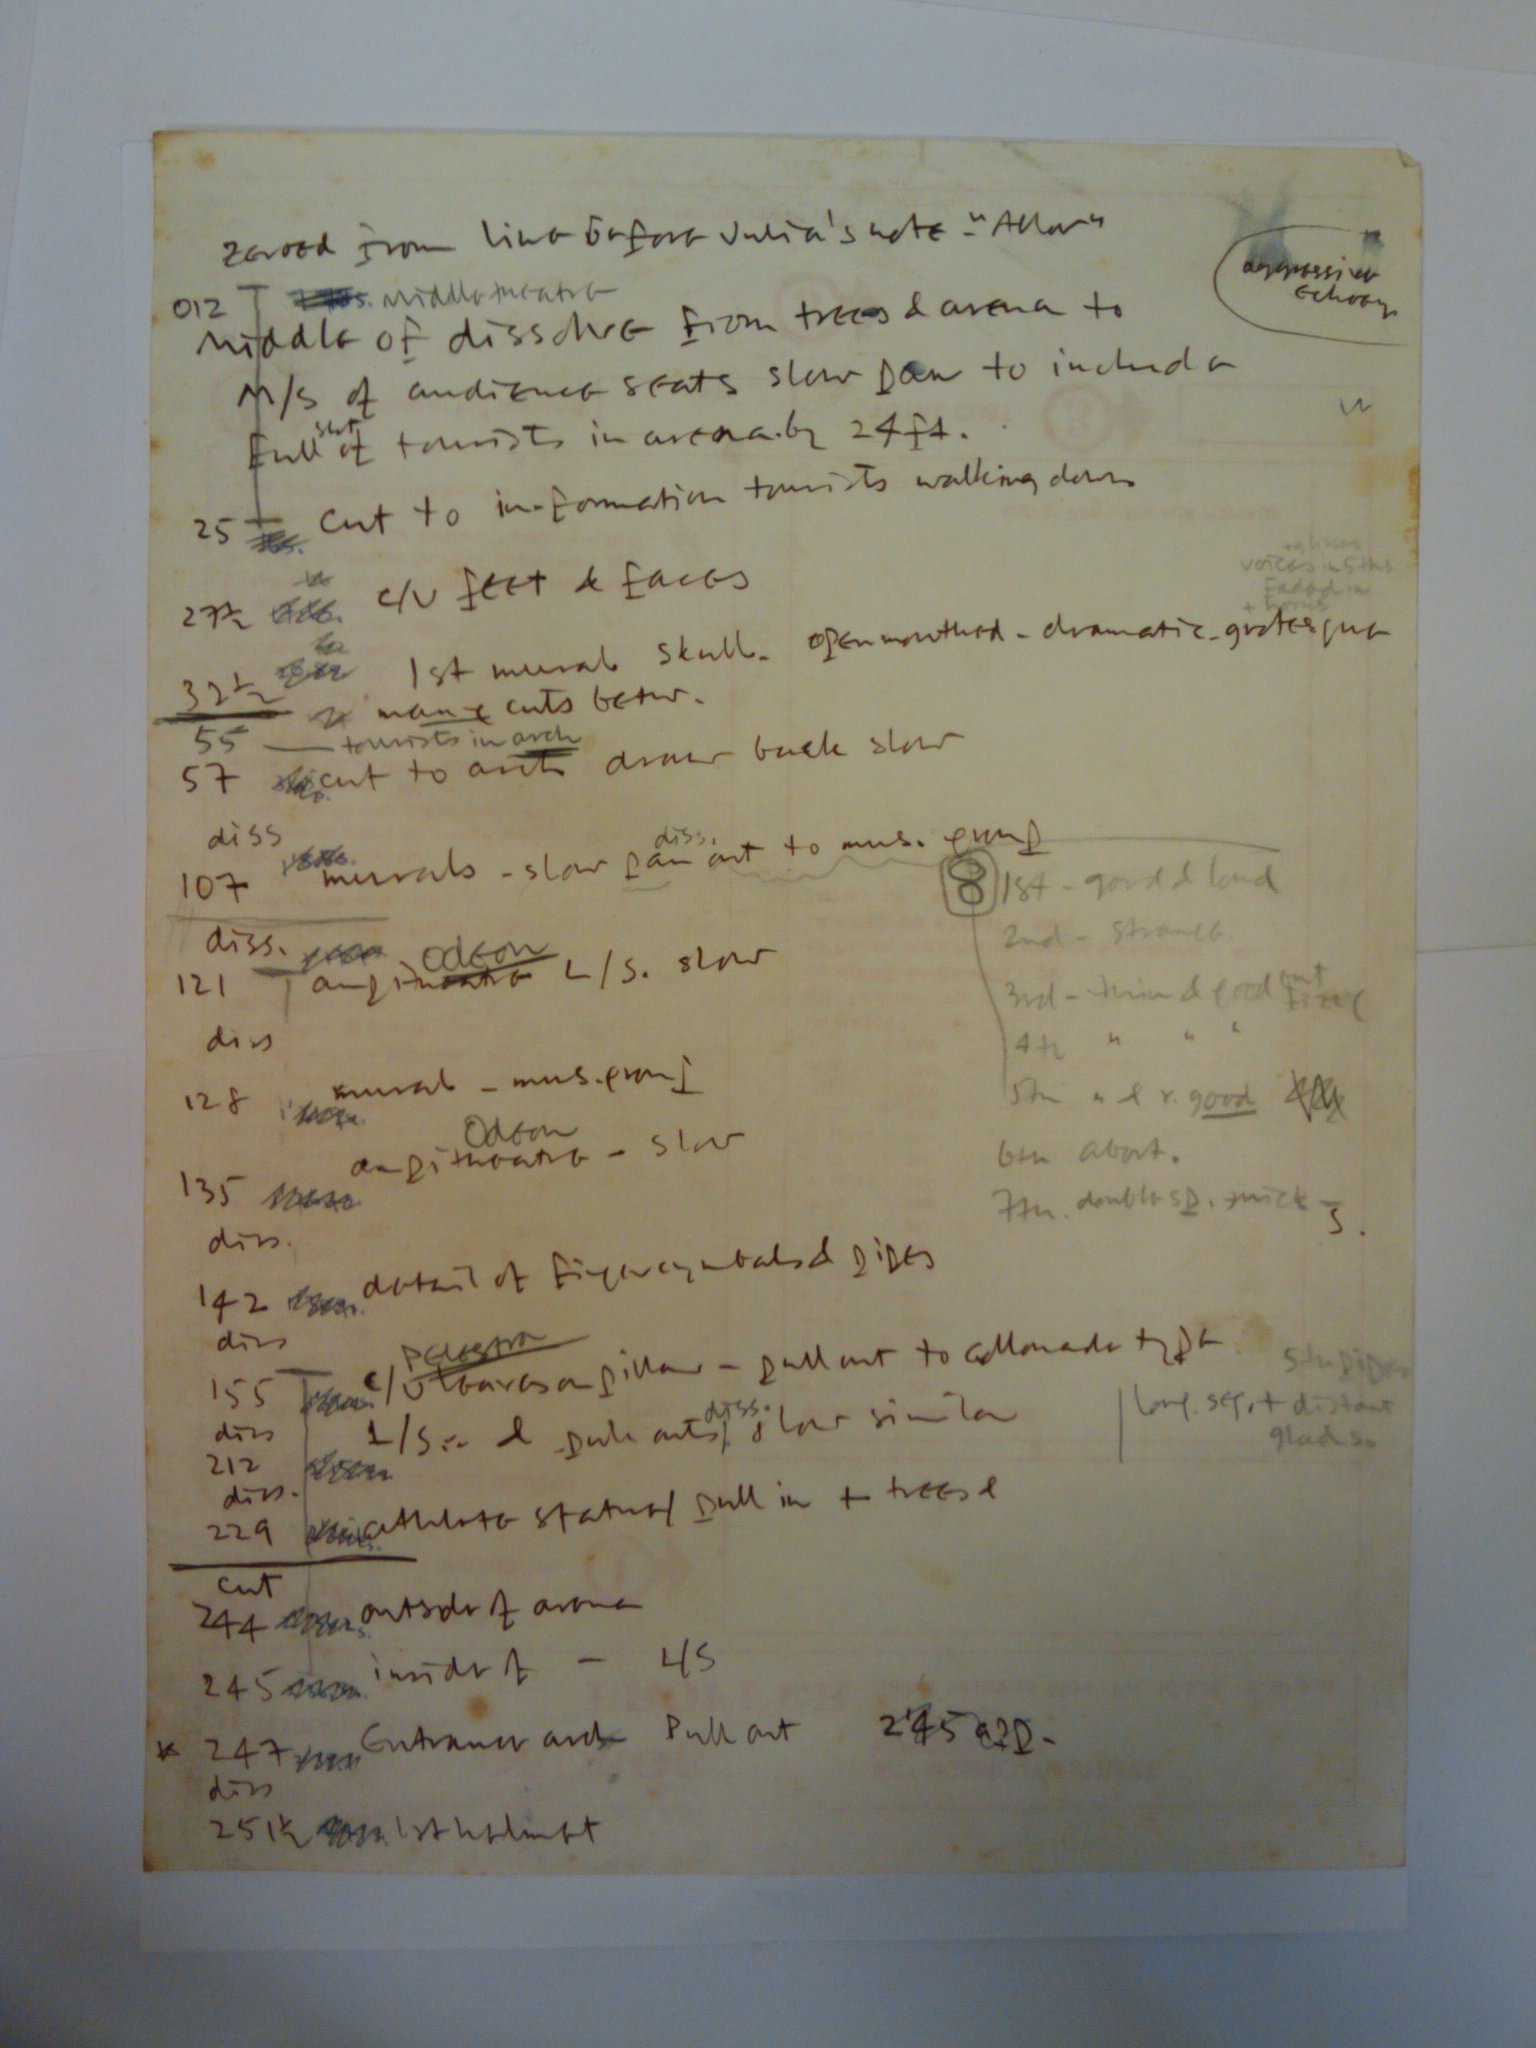 zeroed from line before Julia's note -
aggressive
echoey
012 middle theatre
Middle of dissolve from trees & arena to
M/S of audience seats slow pan to include
full shot of tourists in arena by 24 ft.
25 Cut to in-formation tourists walking down
27½ C/U feet & faces
voices in 5ths
faded in
32½ 1st mural skull - openmouthed - dramatic - grotesque
many cuts betw.
55 tourists in arch
57 cut to arch draw back slow
diss
107 murals - slow pan out diss. to mus. group
8 1st - good & loud
diss.
2nd - strange
121 Odeon L/S. slow
3rd - thin & good
diss
4th " " "
128 mural - mus. group
5th " & v. good
Odeon
135 ampitheatre - slow
6th abort.
diss.
7th. double sp.
142 detail of finger cymbals & pipes
diss
Palestra
155 C/U leaves on pillar - pull out to collonade type
diss
212 L/S & pull outs diss. slow similar
long. sep. + distant
diss.
229 athlete statue pull in + trees &
cut
244 outside of arena
245 inside of - L/S
* 247 Entrance arch Pull out 245
diss
251½ 1st helmet